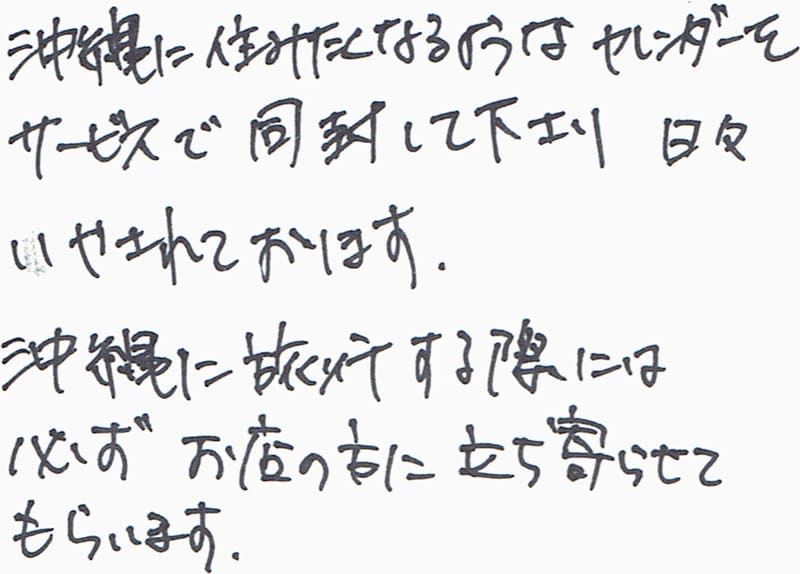 沖縄に住みたくなるような カレンダーを
サービスで 同封して下さり 日々
いやされております.
沖縄に旅行する際には
必ず お店の方に 立ち寄らせて
もらいます.